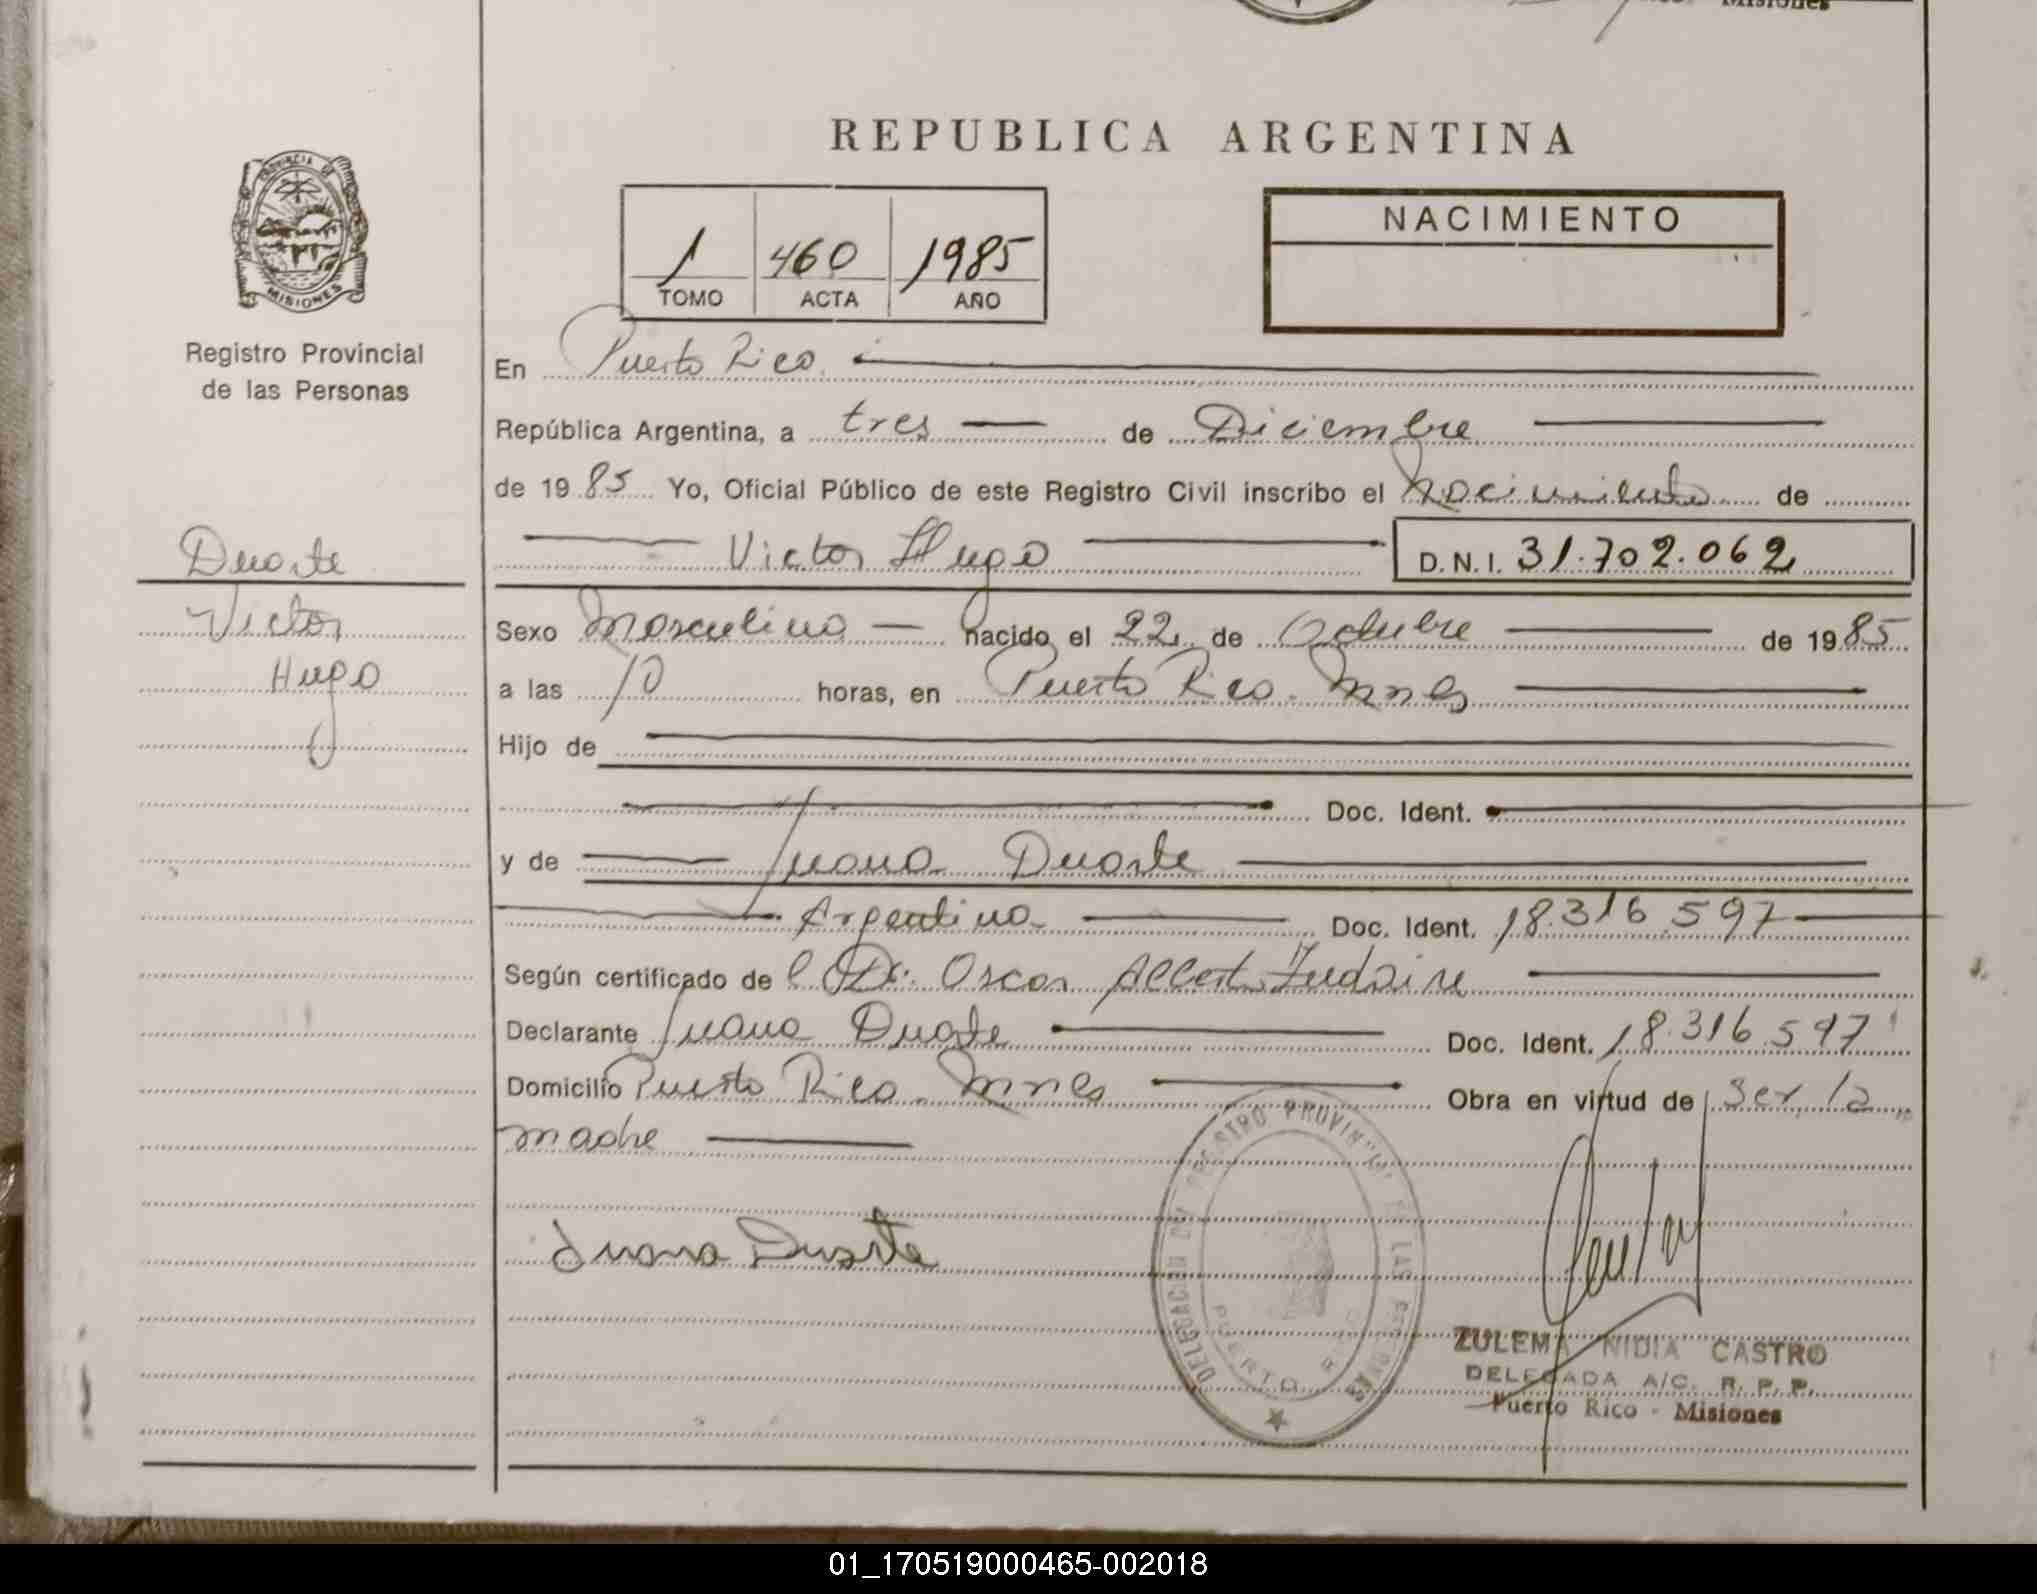 Misiones
REPUBLICA ARGENTINA
PROVINCIA DE
MISIONES
Registro Provincial
de las Personas
1 460 1985
TOMO ACTA AÑO
NACIMIENTO
En Puerto Rico.
República Argentina, a tres de Diciembre
de 1985 Yo, Oficial Público de este Registro Civil inscribo el Nacimiento de
Duarte
Victor
Hugo
Victor Hugo D.N.I. 31.702.062
Sexo Masculino nacido el 22 de Octubre de 1985
a las 10 horas, en Puerto Rico. Mnes
Hijo de
Doc. Ident.
y de Juana Duarte
Argentina Doc. Ident. 18.316.597
Según certificado de l Dr. Oscar Alberto
Declarante Juana Duarte Doc. Ident. 18.316.597
Domicilio Puerto Rico. Mnes Obra en virtud de ser la
madre
Juana Duarte
DELEGACION DEL REGISTRO PROVINCIAL DE LAS PERSONAS
PUERTO RICO
ZULEMA NIDIA CASTRO
DELEGADA A/C. R. P. P.
Puerto Rico - Misiones
01_170519000465-002018